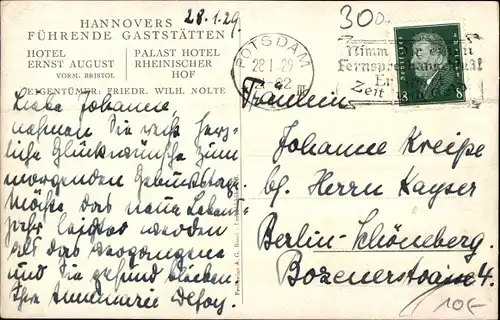 28.1.29.
300
HANNOVERS
FÜHRENDE GASTSTÄTTEN
HOTEL
ERNST AUGUST
VORM. BRISTOL
PALAST HOTEL
RHEINISCHER
HOF
EIGENTÜMER: FRIEDR. WILH. NOLTE
POTSDAM
28.1.29
Nimm
Fernsprechanschluß!
Er
Zeit
DEUTSCHES REICH
8 8
Liebe Johanne,
nehmen Sie recht herz-
liche Glückwünsche zum
morgenden Geburtstag.
Möge das neue Lebens-
jahr leichter werden
als das vergangene
und Sie gesund bleiben.
Ihre Annemarie
Fräulein
Johanne Kreipe
bg. Herrn Kayser
Berlin-Schöneberg
Bozenerstraße 4.
10€